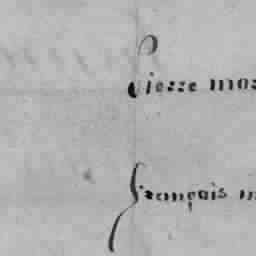 Pierre mar
françois m